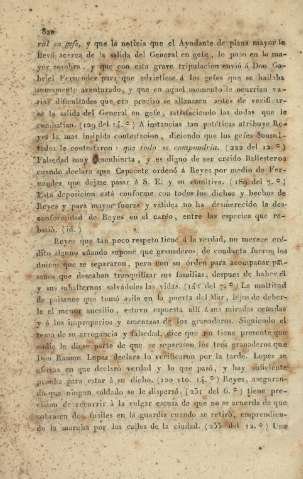 820
ral en gefe, y que la noticia que el Ayudante de plana mayor le
llevó acerca de la salida del General en gefe, le puso en la ma-
yor zozobra, y que con esta grave tripulacion envió á Don Ga-
briel Fernandez para que advirtiese á los gefes que se hallaba
sumamente aventurado, y que en aquel momento le ocurrian va-
rias dificultades que era preciso se allanasen antes de verificar-
se la salida del General en gefe, satisfaciendo las dudas que le
A instancias tan patéticas atribuye Re-
yes la mas insípida contestacion, diciendo que los gefes
todos le contestaron : que todo se compondria. (222 del 12.º)
Falsedad muy descubierta, y es digno de ser creido Ballesteros
cuando declara que Capacete ordenó á Reyes por medio de Fer-
nandez que dejase pasar á S. E. y su comitiva.
Esta deposicion está conforme con todos los dichos y hechos de
Reyes y para mayor fuerza y validez no ha desmerecido la des-
conformidad de Reyes en el careo, entre las especies que re-
(id.)
Reyes que tan poco respeto tiene á la verdad, no merece cré-
dito alguno cuando supone que granaderos, de conducta fueron los
únicos que se separaron, pero aun su orden para acompañar pai-
sanos que deseaban tranquilizar sus familias, despues de haber él
y sus subalternos salvádoles las vidas. La multitud
de paisanos que tomó asilo en la puerta del Mar, lejos de deber-
le el menor auxilio, estuvo expuesta allí á sus miradas
y á los improperios y amenazas de los granaderos. Siguiendo el
tema de su arrogancia y falsedad, dice que no tiene presente que
nadie le diese parte de que se separasen los tres granaderos que
Don Ramon Lopez declara lo verificaron por la tarde. Lopez se
en que declaró verdad y lo que pasó, y hay suficiente
prueba para estar á su dicho. Reyes, aseguran-
do que ningun soldado se le dispersó. (231 del 6.º) tiene pre-
cision de recurrir á la vulgar escusa de que no se acuerda de que
sobrasen dos fusiles en la guardia cuando se retiró, emprendien-
do la marcha por las calles de la ciudad. (235 del 12.º) Una